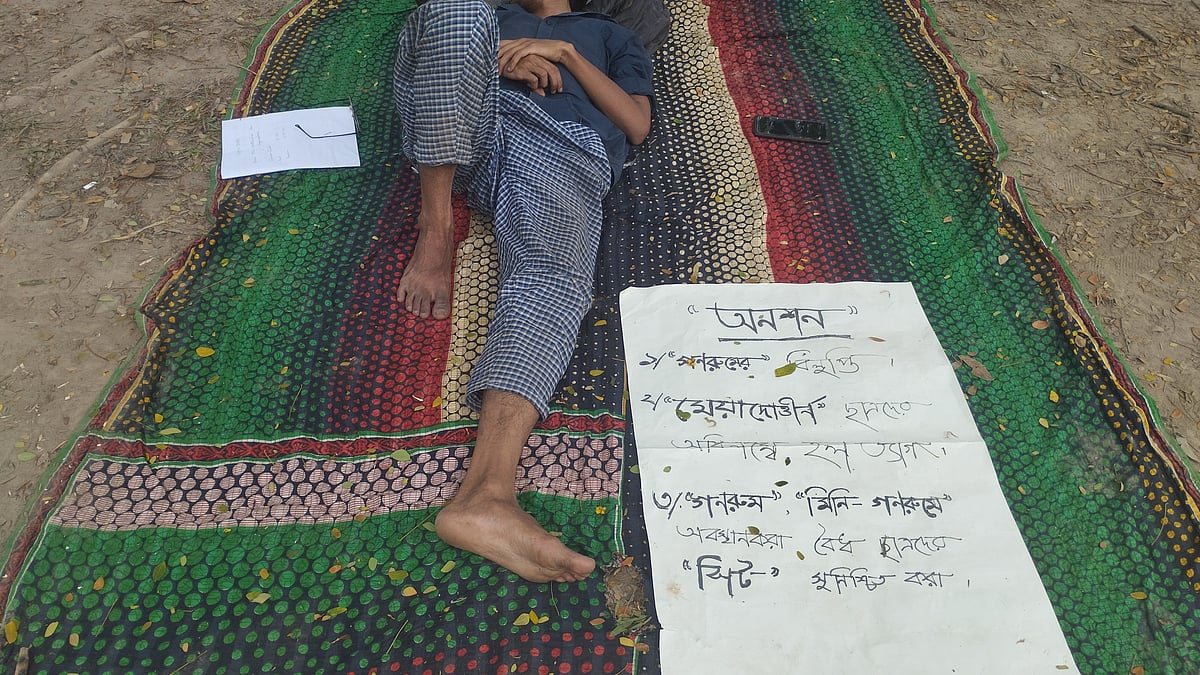 "অনশন"
১/ "গণরুমের" বিলুপ্তি ।
২/ "মেয়াদোত্তীর্ন" ছাত্রদের
অবিলম্বে হল ত্যাগ ।
৩/ "গনরুম", "মিনি-গণরুমে"
অবস্থানকরা বৈধ ছাত্রদের
"সিট" সুনিশ্চিত করা ।